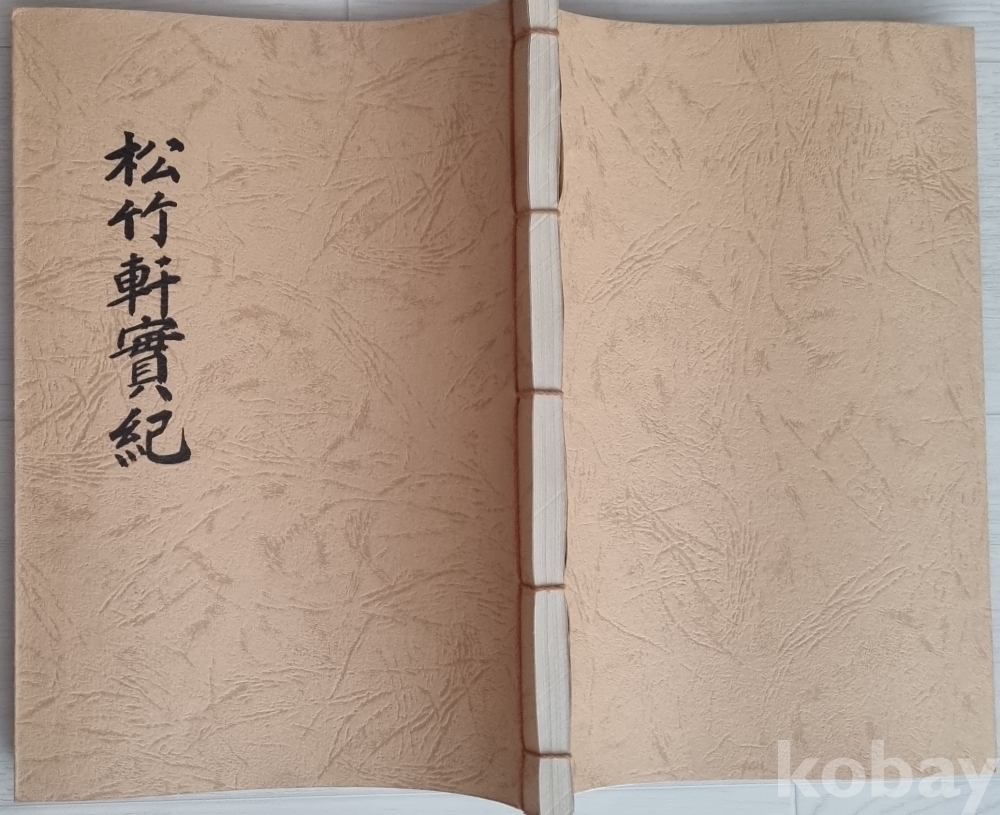 松竹軒實紀
kobay